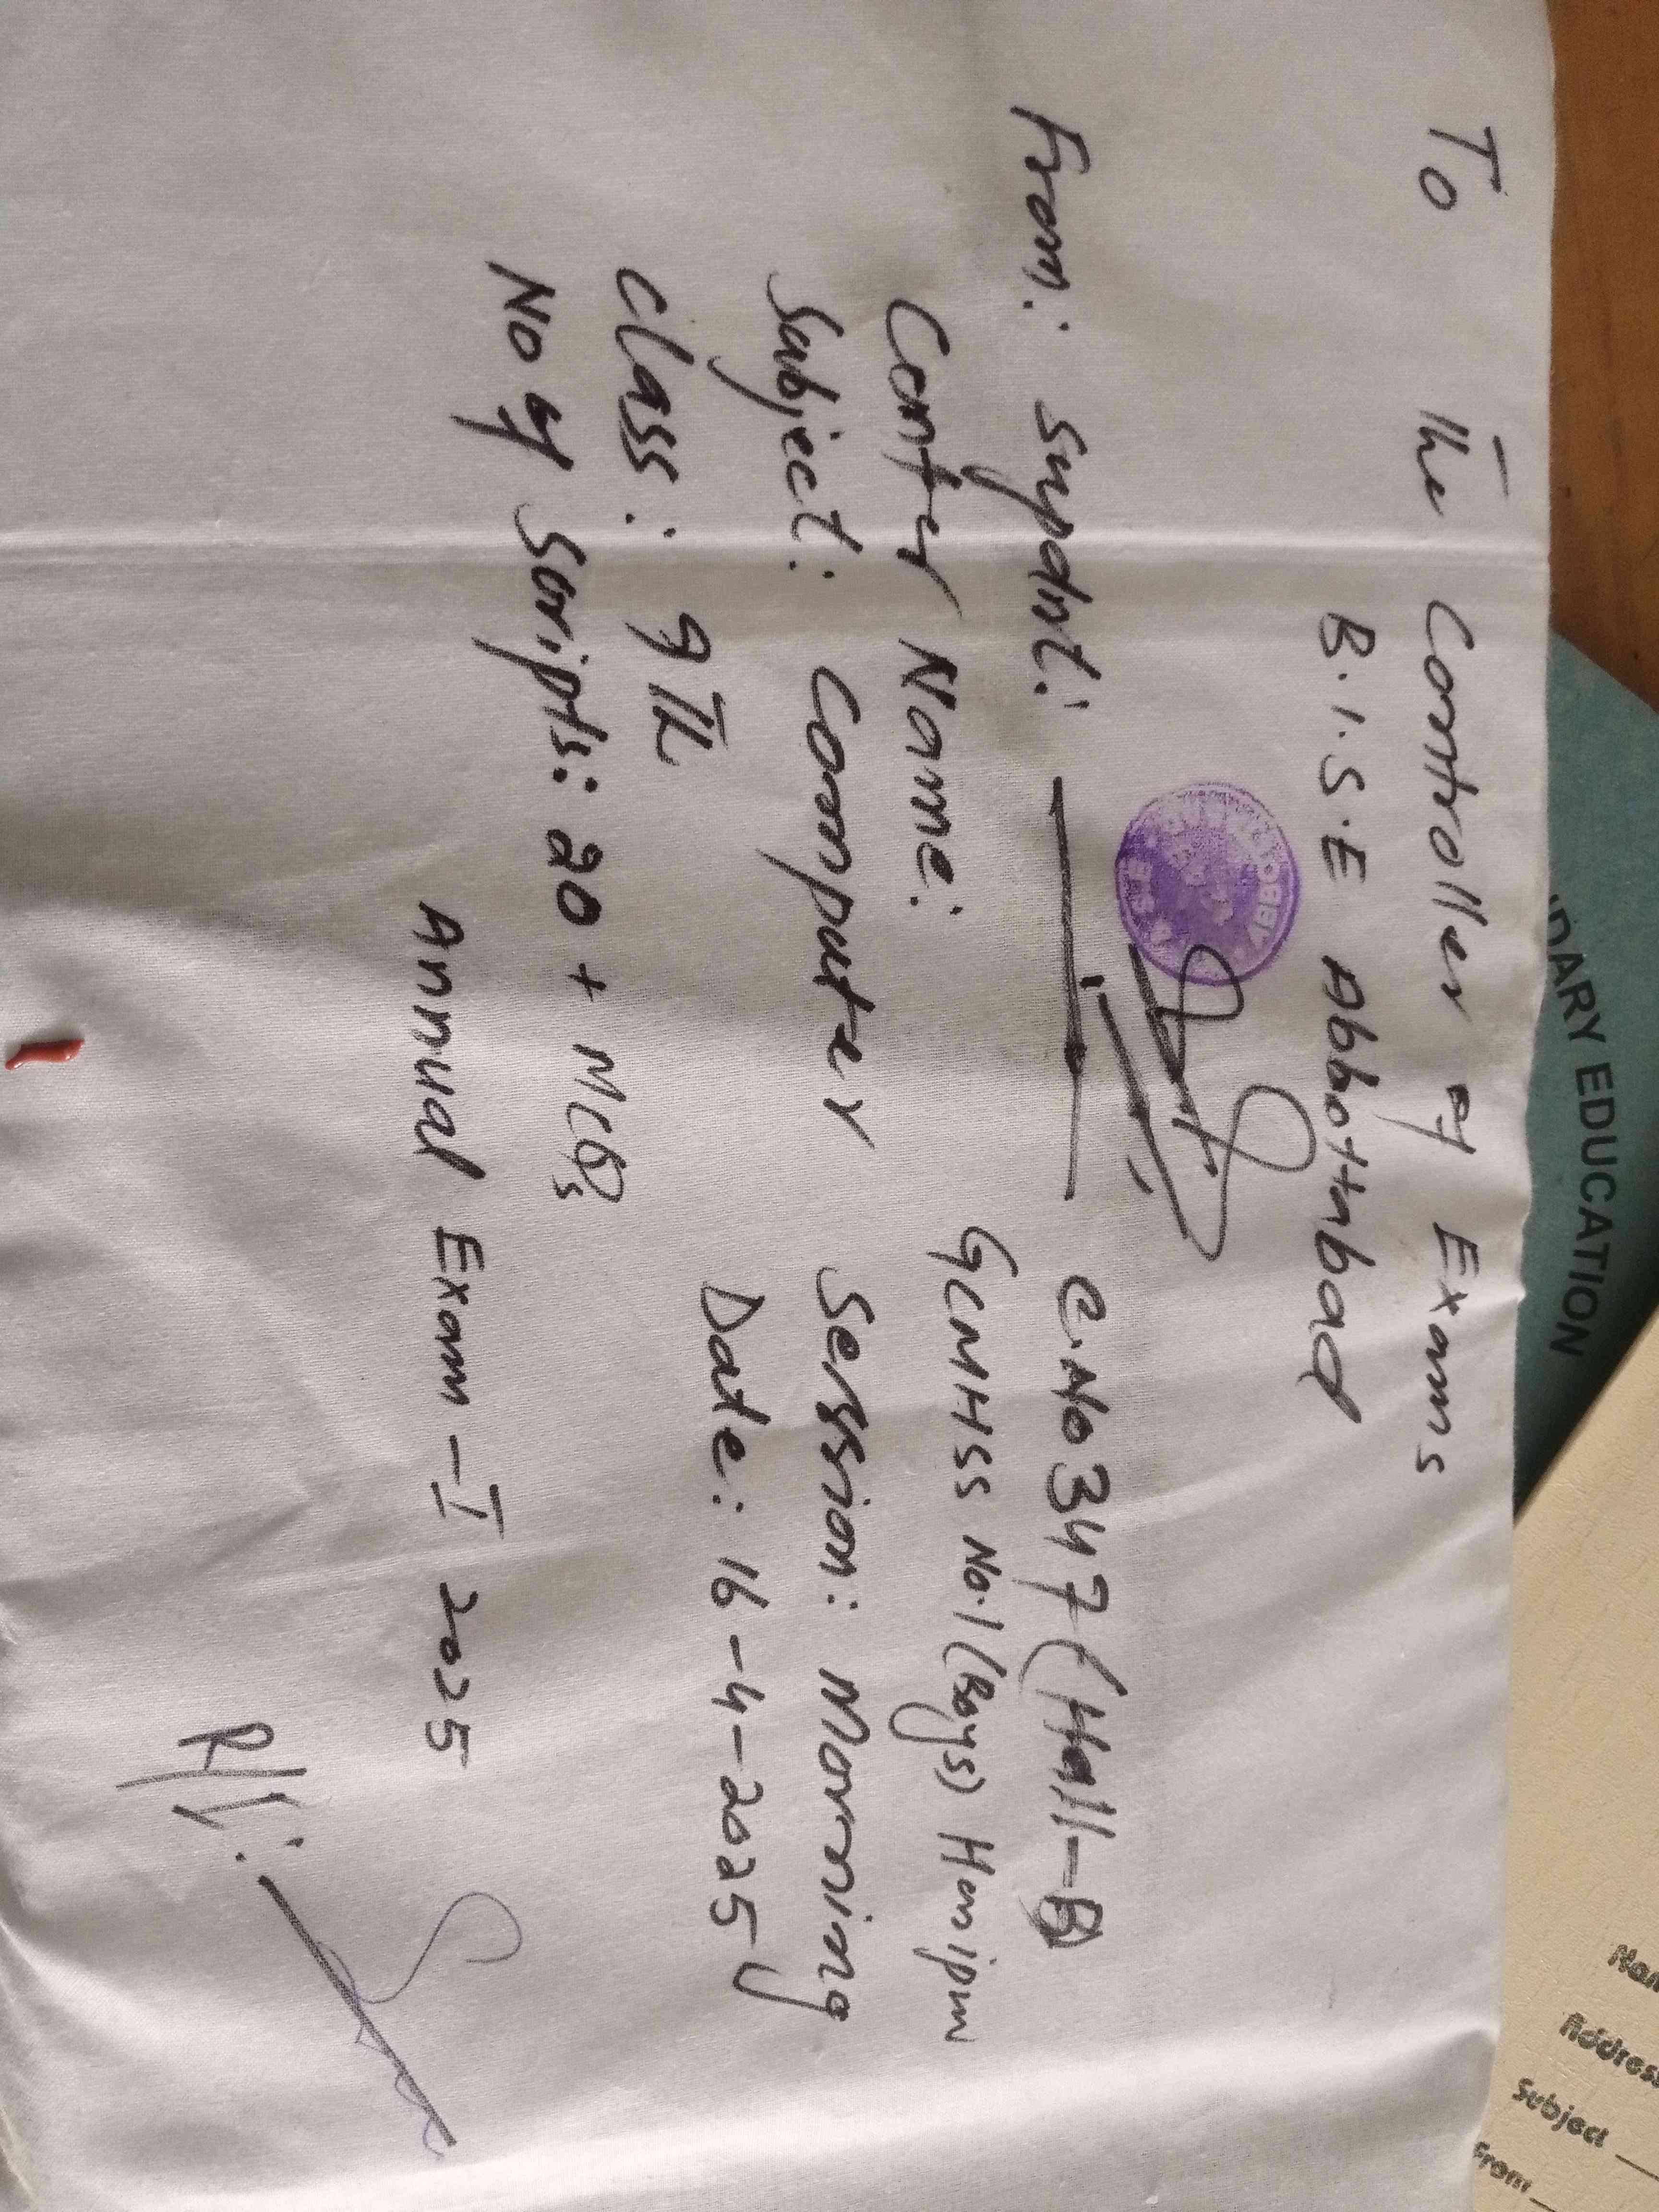 To The Controller of Exams
B.I.S.E Abbottabad
From: Supdnt: C.No 347 (Hall-B)
Center Name: GCMHSS No.1 (Boys) Haripur
Subject: Computer Session: Morning
Class: 9th Date: 16-4-2025
No of Scripts: 20 + MCQs
Annual Exam-I 2025
R/I:
DARY EDUCATION
Nam
Address
Subject
From